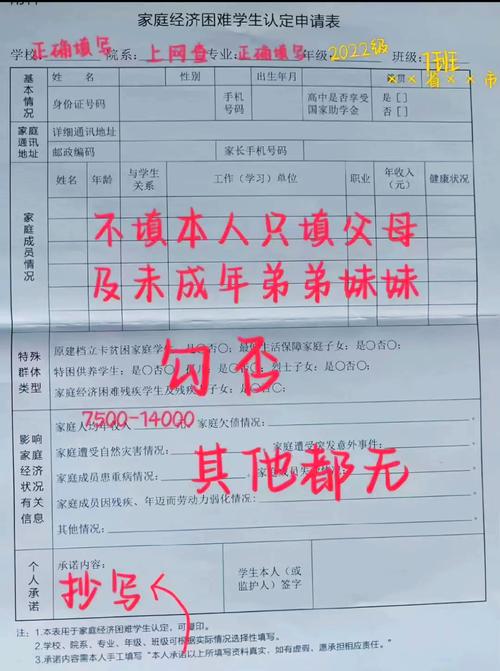 家庭经济困难学生认定申请表
学校:正确填写 院系:上网查 专业:正确填写 年级:2022级 班级:1班
××省××市
基本情况 姓 名 性别 出生年月 籍贯
身份证号码 手机号码 高中是否享受国家助学金 是 [ ] 否 [ ]
家庭通讯地址 详细通讯地址
邮政编码 家长手机号码
家庭成员情况 姓名 年龄 与学生关系 工作(学习)单位 职业 年收入(元) 健康状况
不填本人只填父母
及未成年弟弟妹妹
特殊群体类型 原建档立卡贫困家庭学生:是〇否〇; 最低生活保障家庭子女:是〇否〇;
特困供养学生:是〇否〇; 孤儿:是〇否〇; 烈士子女:是〇否〇;
家庭经济困难残疾学生及残疾人子女:是〇否〇;
勾否
影响家庭经济状况有关信息 家庭人均年收入 7500-14000 元 家庭欠债情况:
家庭遭受自然灾害情况: 家庭遭受突发意外事件:
家庭成员患重病情况: 家庭成员失业情况:
家庭成员因残疾、年迈而劳动力弱化情况:
其他情况:
其他都无
个人承诺 承诺内容: 学生本人(或监护人)签字
抄写
注:1.本表用于家庭经济困难学生认定,可复印。
2.学校、院系、专业、年级、班级可根据实际情况选择性填写。
3.承诺内容需本人手工填写“本人承诺以上所填写资料真实,如有虚假,愿承担相应责任。”